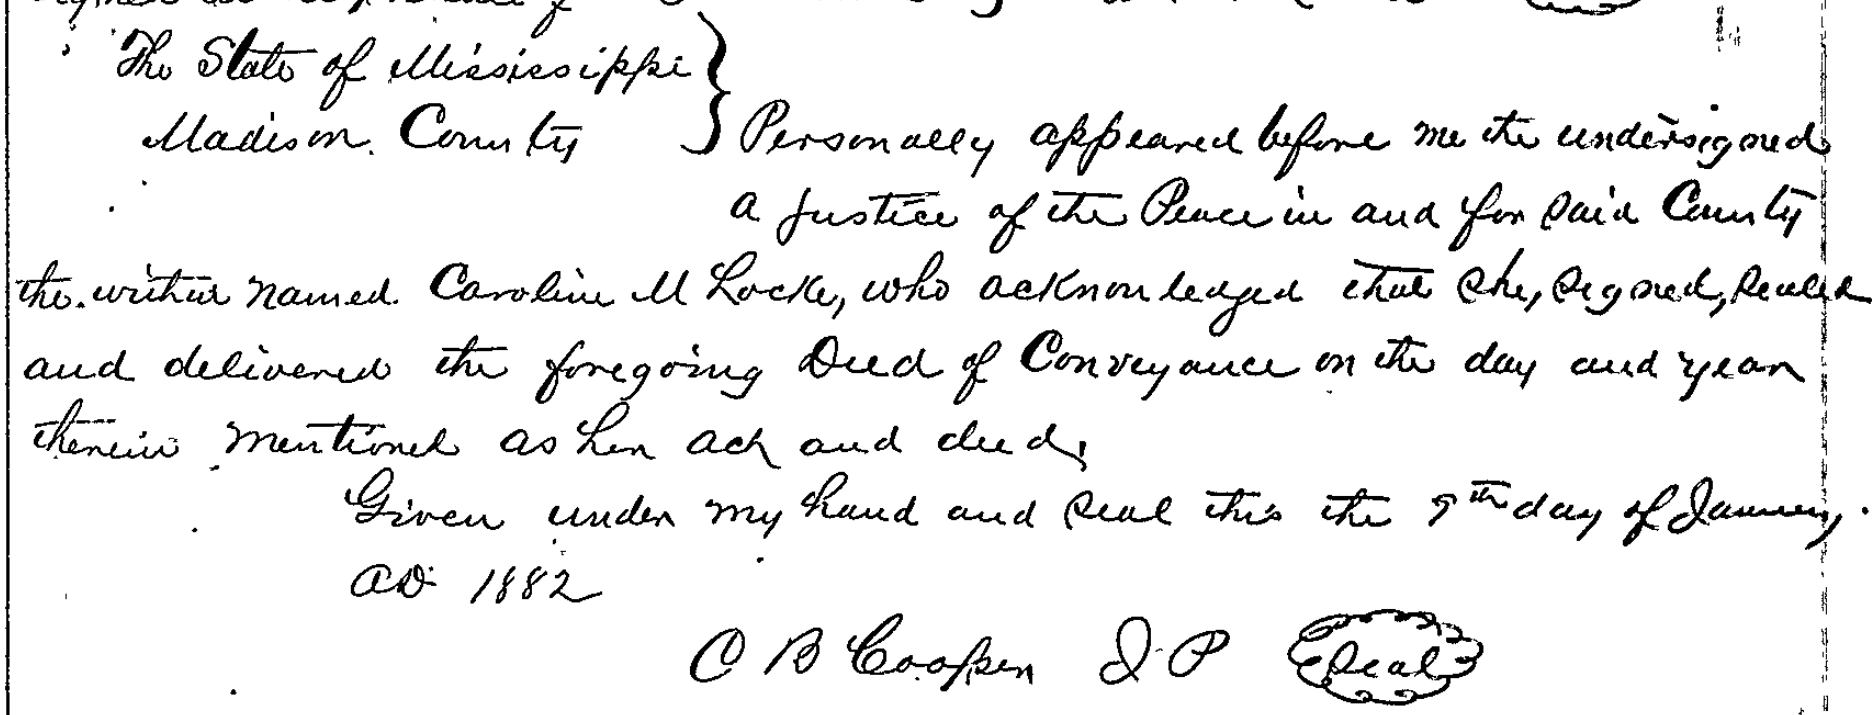 The State of Mississippi
Madison County } Personally appeared before me the undersigned
a justice of the Peace in and for said County
the within named Caroline M Locke, who acknowledged that she, signed, sealed
and delivered the foregoing Deed of Conveyance on the day and year
therein mentioned as her act and deed,
Given under my hand and seal this the 9th day of January
AD 1882
C B Cooper J P Seal